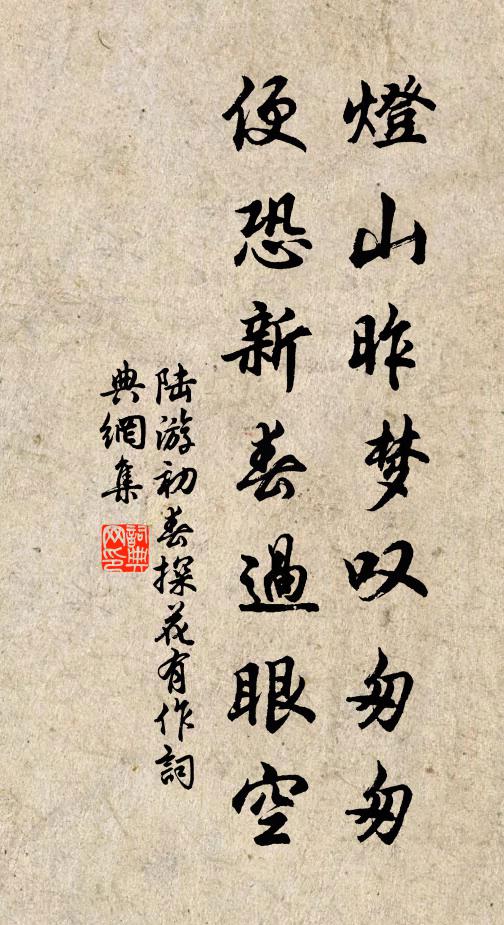 燈山昨梦叹匆匆
便恐新春過眼空
陆游初春探花有作詞
典網集
詞典網印